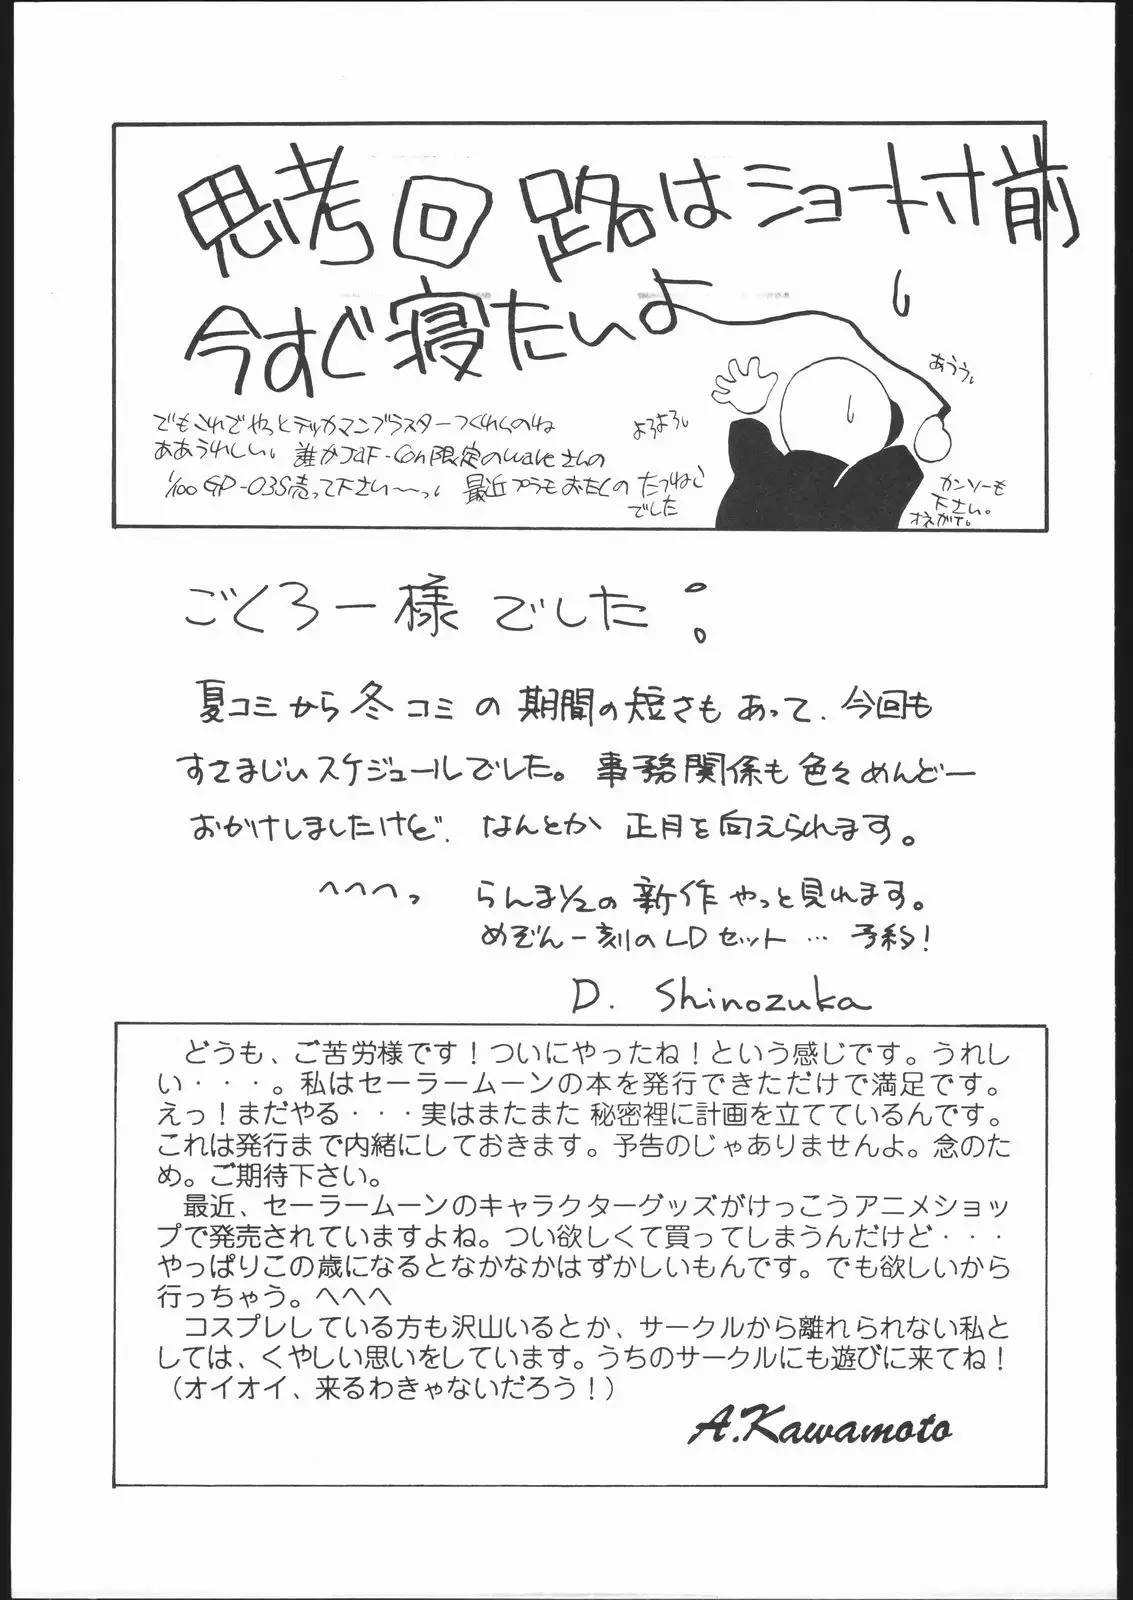 思考回路はショート寸前
今すぐ寝たいよ
あうう。
よろよろ。
でもこれでやっとテッカマンブラスターつくれるのね
ああうれしい。誰かJaF-Con限定のwaveさんの
1/100 GP-03S売って下さい〜っ。最近プラモおたくの たつねこ
でした
カンソーも
下さい。
オネガイ。
ごくろー様でした。
夏コミから冬コミの期間の短さもあって、今回も
すさまじいスケジュールでした。事務関係も色々めんどー
おかけしましたけど、なんとか正月を向えられます。
へへへっ らんま1/2の新作やっと見れます。
めぞん一刻のLDセット…予約!
D. Shinozuka
どうも、ご苦労様です！ついにやったね！という感じです。うれし
い・・・。私はセーラームーンの本を発行できただけで満足です。
えっ！まだやる・・・実はまたまた 秘密裡に計画を立てているんです。
これは発行まで内緒にしておきます。予告のじゃありませんよ。念のた
め。ご期待下さい。
最近、セーラームーンのキャラクターグッズがけっこうアニメショッ
プで発売されていますよね。つい欲しくて買ってしまうんだけど・・・
やっぱりこの歳になるとなかなかはずかしいもんです。でも欲しいから
行っちゃう。へへへ
コスプレしている方も沢山いるとか、サークルから離れられない私と
しては、くやしい思いをしています。うちのサークルにも遊びに来てね！
（オイオイ、来るわきゃないだろう！）
A.Kawamoto